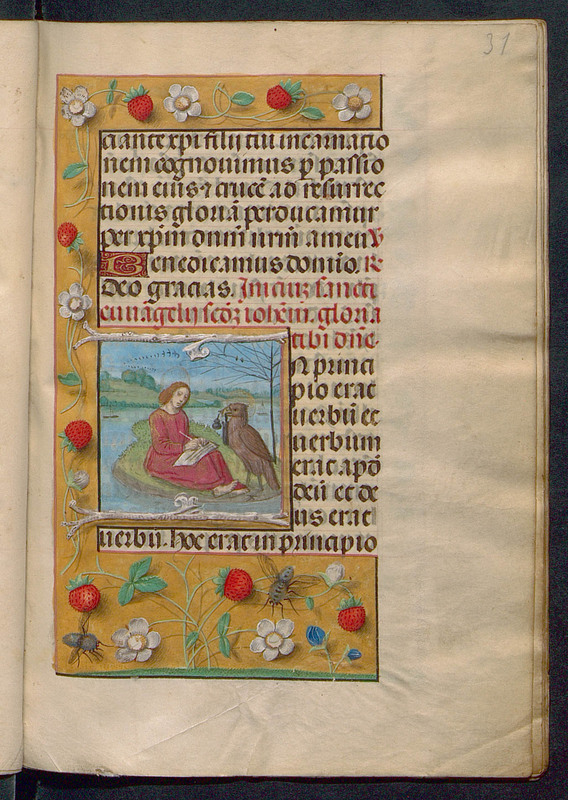 31
ciante xp̄i filij tui incarnatio
nem cognouimus p̄ passio
nem eius ⁊ crucē ad resurrec
tionis gloriā perducamur
per xp̄m dn̄m nr̄m amen V
Benedicamus domīo. R
Deo gracias. Iniciū sancti
euuāgelij scd̄ʒ iohēm. gloria
tibi dn̄e.
N princi
pio erat
uerbū et
uerbum
erat apd̄
deū et de
us erat
uerbū. hoc erat in principio